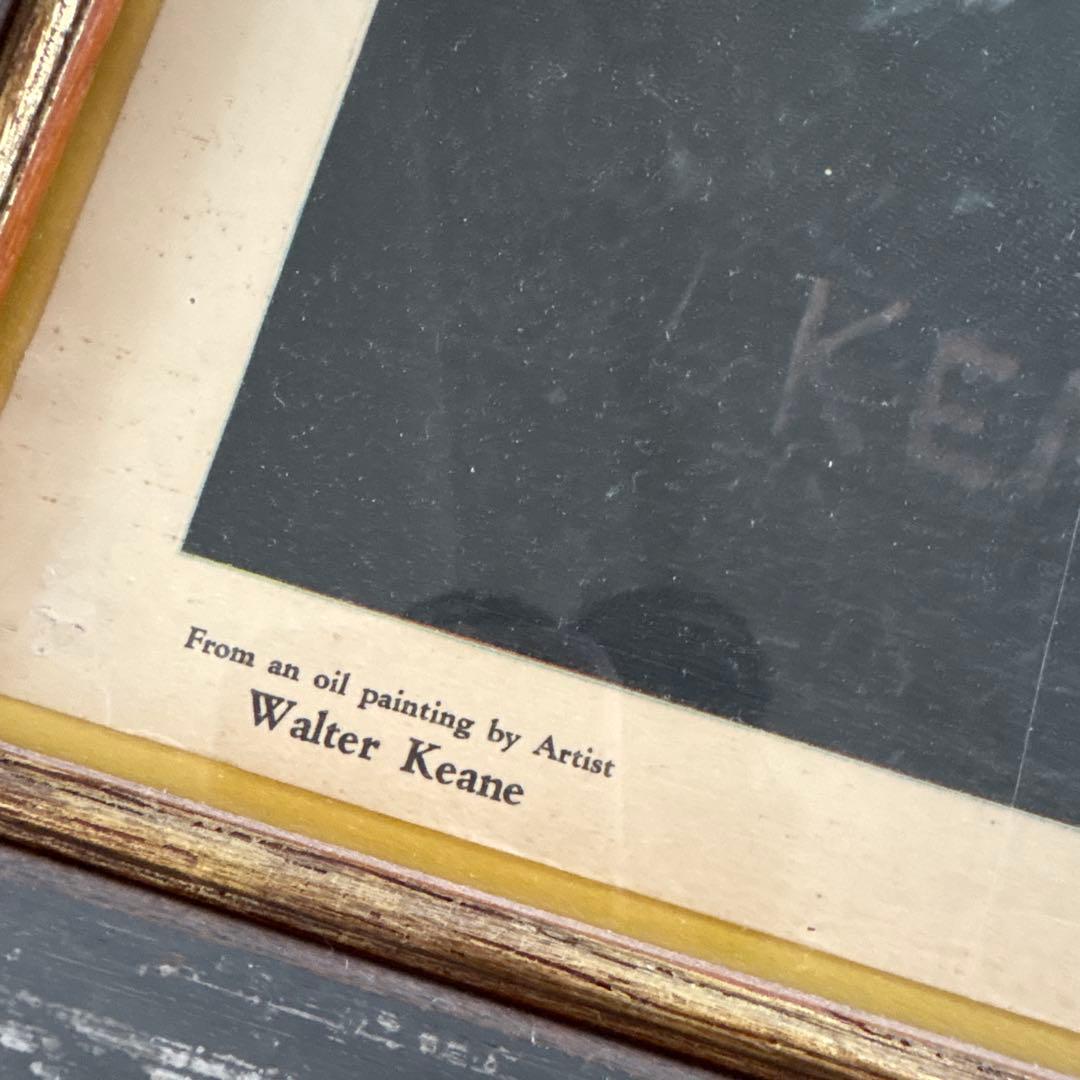 KEA
From an oil painting by Artist
Walter Keane